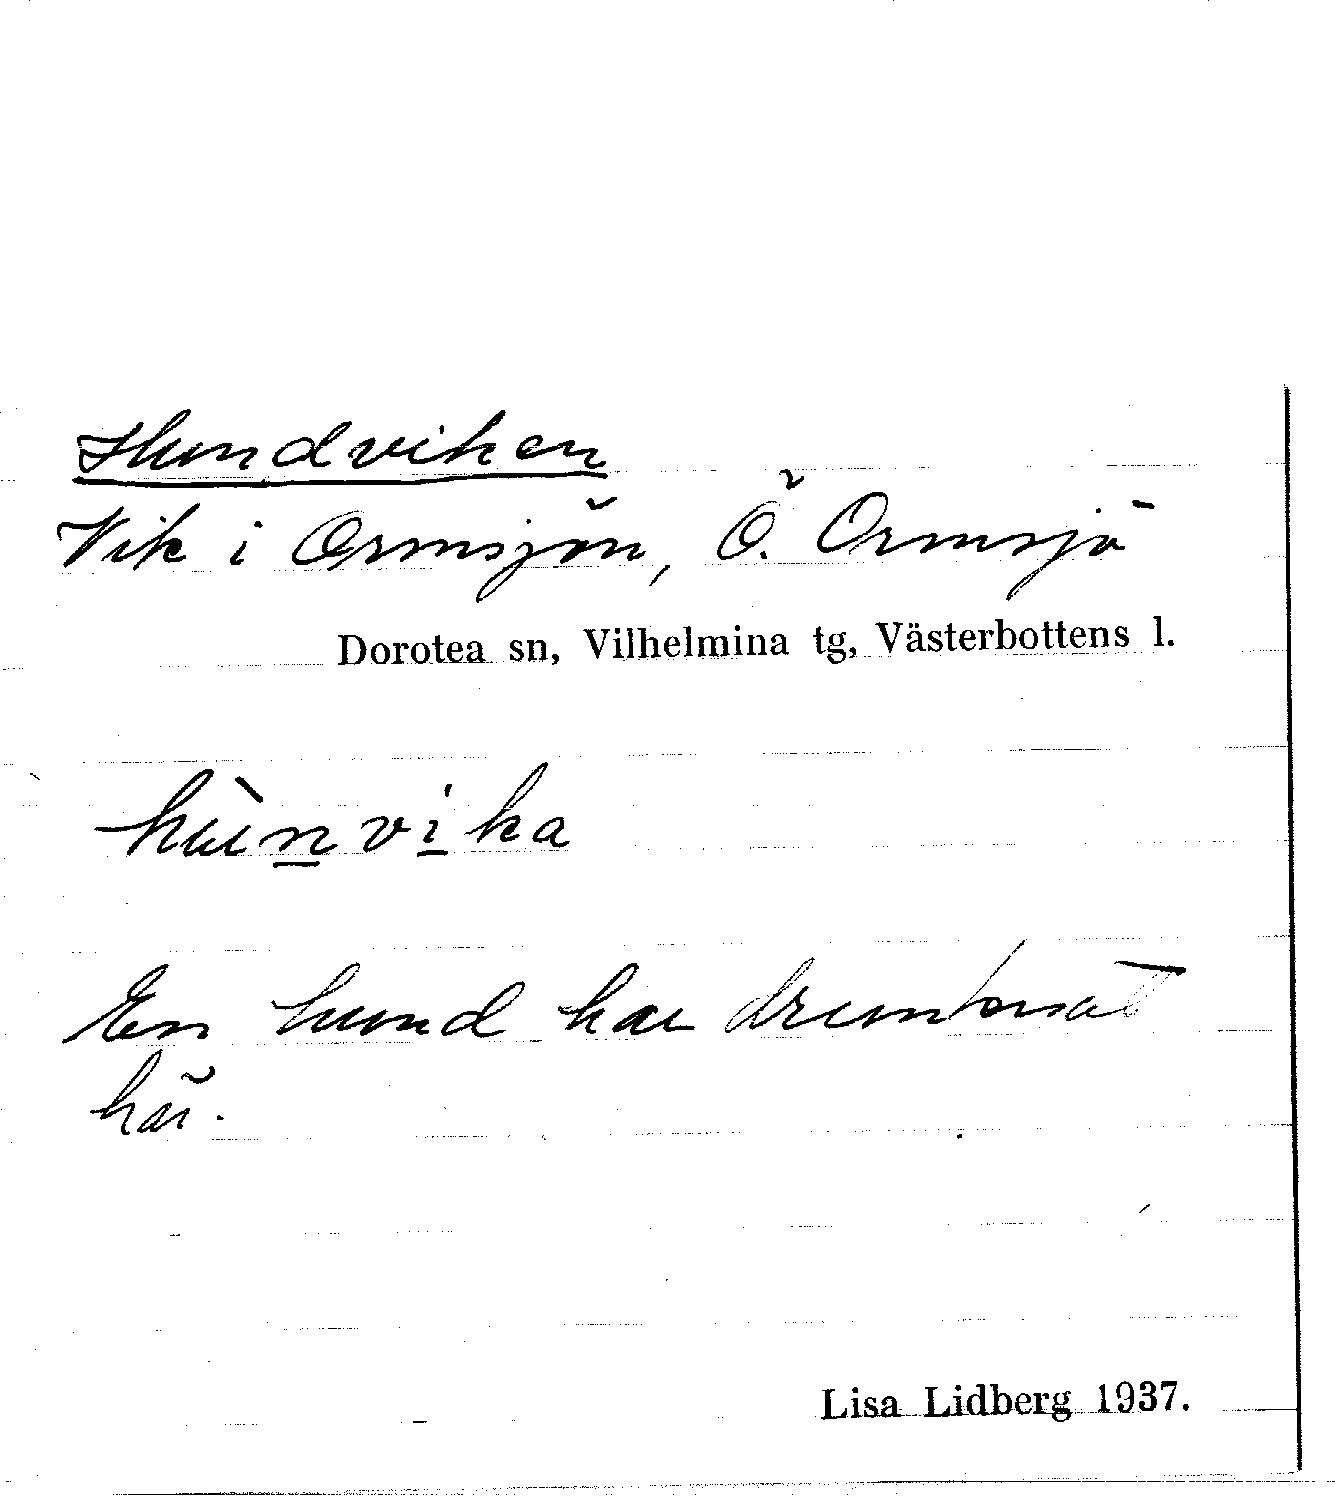 Hundviken
Vik i Ormsjön, Ö. Ormsjö
Dorotea sn, Vilhelmina tg, Västerbottens l.
hùn̲vi̲ka
En hund har drunknat
här.
Lisa Lidberg 1937.